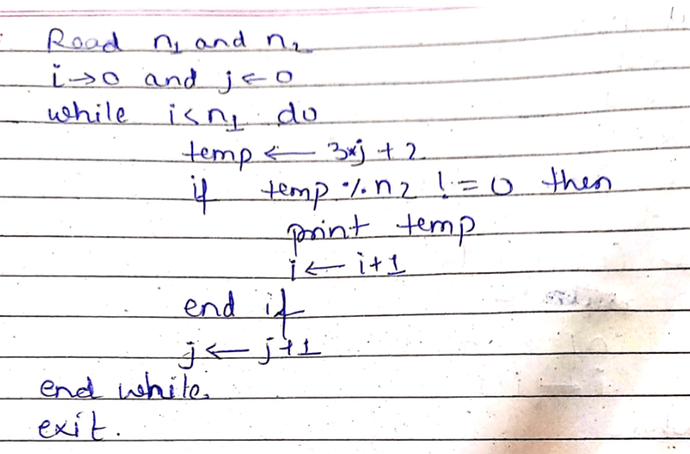 Read n1 and n2
i→0 and j←0
while i<n1 do
temp ← 3*j + 2
if temp % n2 != 0 then
print temp
i ← i+1
end if
j ← j+1
end while.
exit.